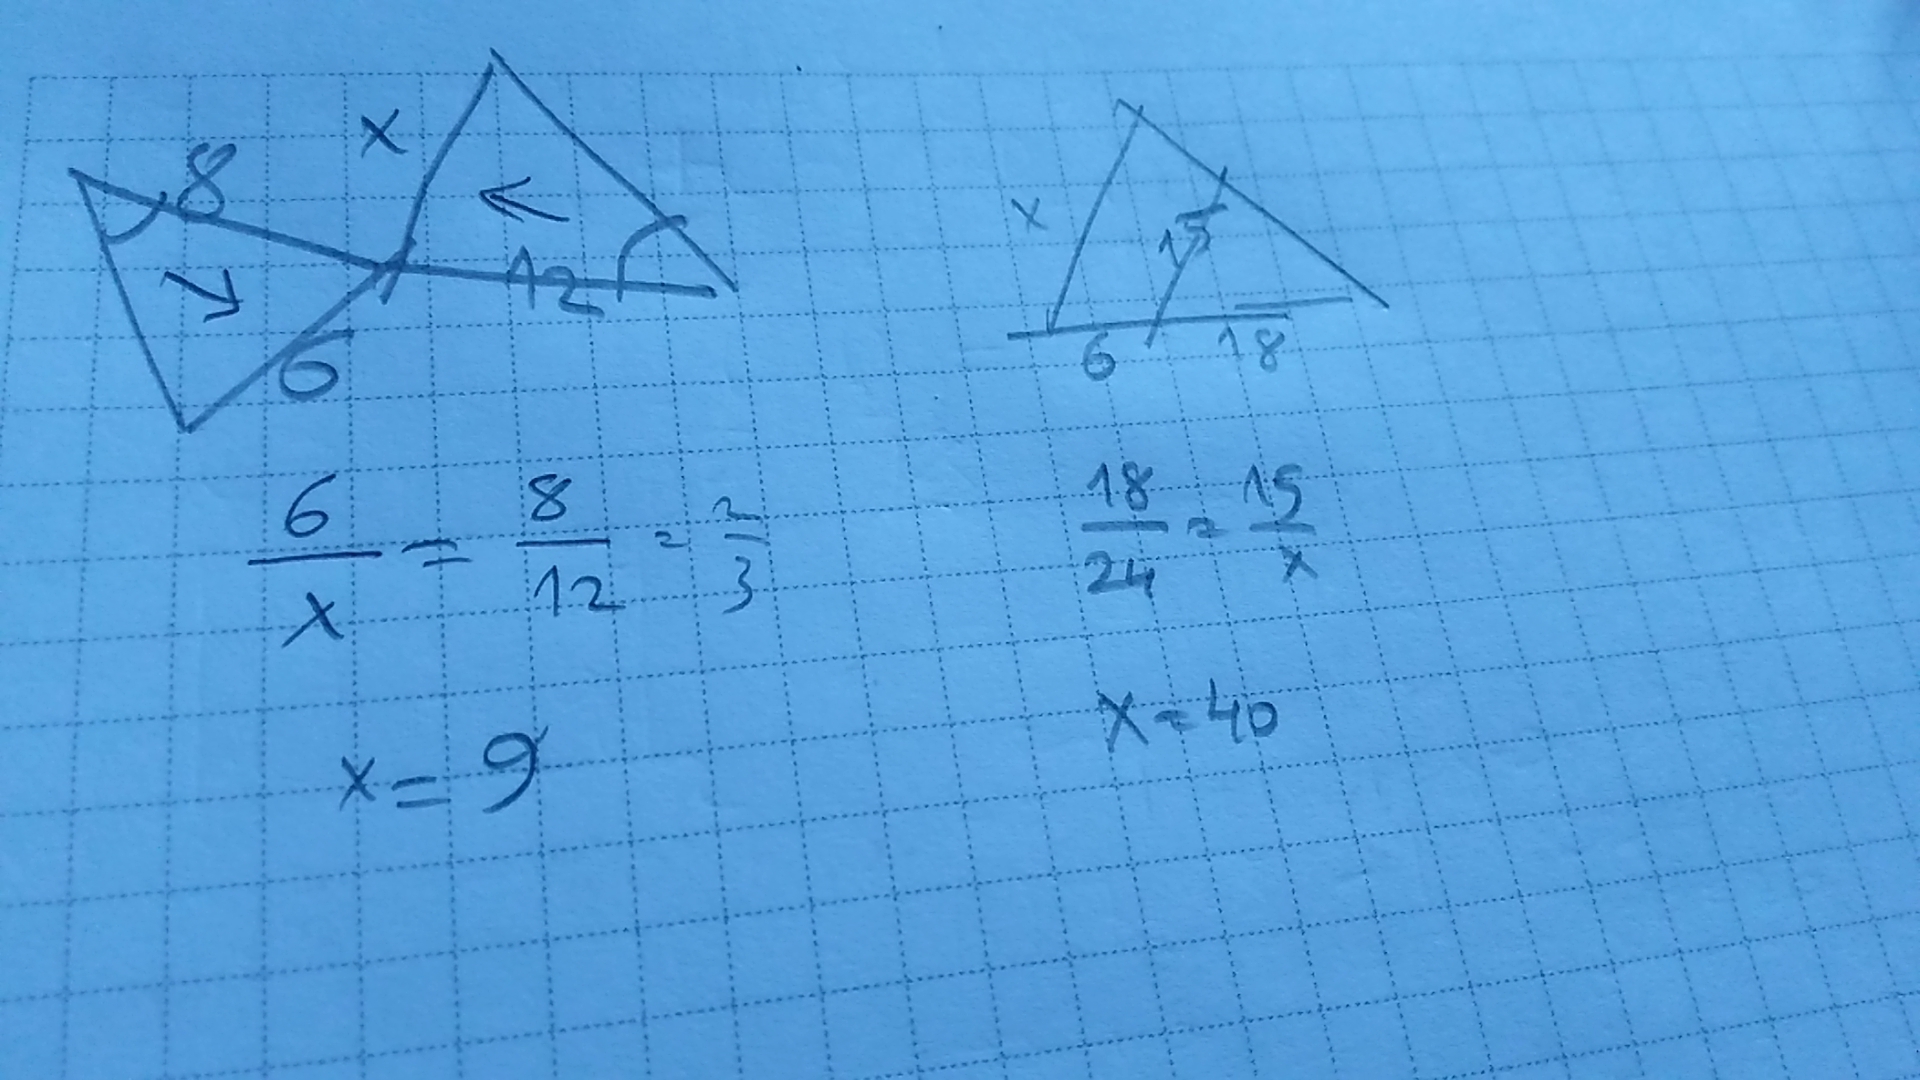 8
x
12
6
6/x = 8/12 = 2/3
x = 9
x
15
6
18
18/24 = 15/x
x = 40